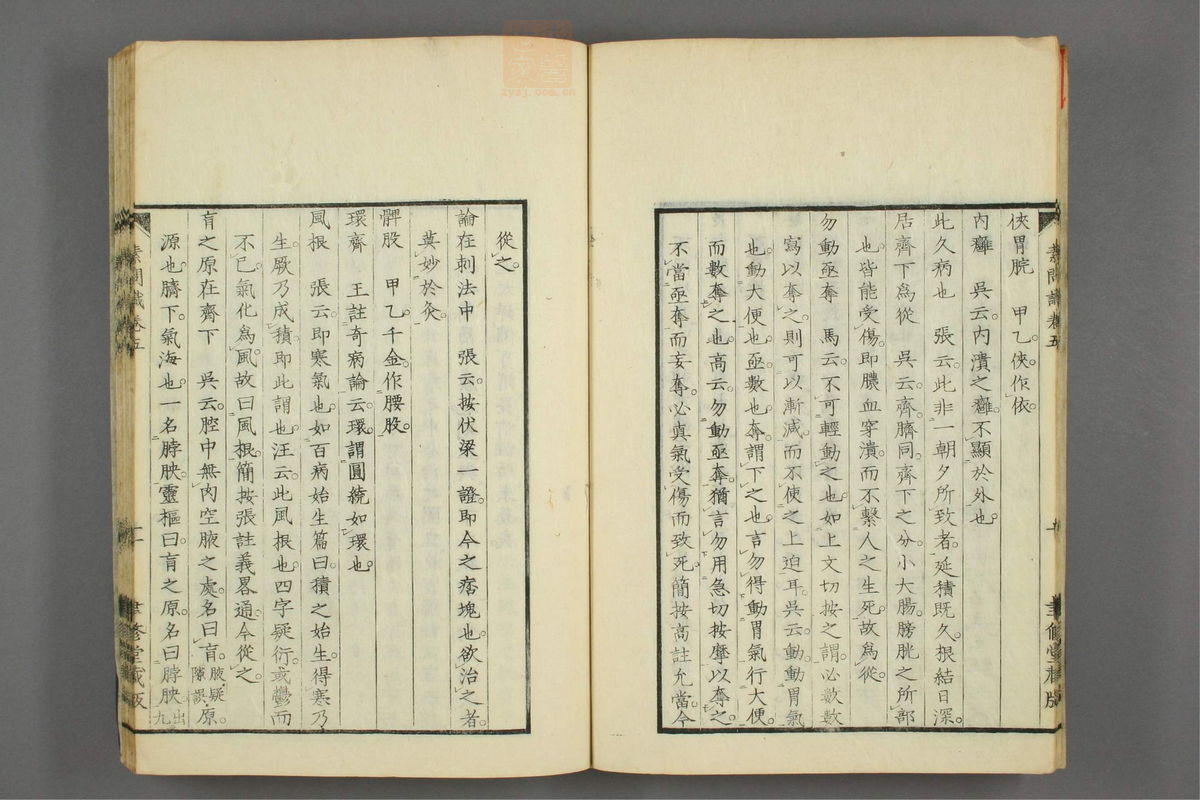 俠胃脘　甲乙俠作依
內癰　吳云內潰之癰不顯於外也
此久病也　張云此非一朝夕所致者延積既久根結日深
居齊下為從　吳云齊臍同齊下之分小大腸膀胱之所部
也皆能受傷即膿血穿潰而不繫人之生死故為從
勿動亟奪　馬云不可輕動之也如上文切按之謂必數數
寫以奪之則可以漸減而不使之上迫耳吳云動動胃氣
也動大便也亟數也奪謂下之也言勿得動胃氣行大便
而數奪之也高云勿動亟奪猶言勿用急切按摩以奪之
不當亟奪而妄奪必真氣受傷而致死簡按高註允當今
素問識卷五
聿修堂藏版
從之
論在刺法中　張云按伏梁一證即今之痞塊也欲治之者
莫妙於灸
髀股　甲乙千金作腰股
環齊　王註奇病論云環謂圓繞如環也
風根　張云即寒氣也如百病始生篇曰積之始生得寒乃
生厥乃成積即此謂也汪云此風根也四字疑衍或鬱而
不已氣化為風故曰風根簡按張註義畧通今從之
肓之原在齊下　吳云腔中無肉空腋之處名曰肓腋疑隙誤原
源也臍下氣海也一名脖胦靈樞曰肓之原名曰脖胦出九
素問識卷五
聿修堂藏版
zysj.com.cn